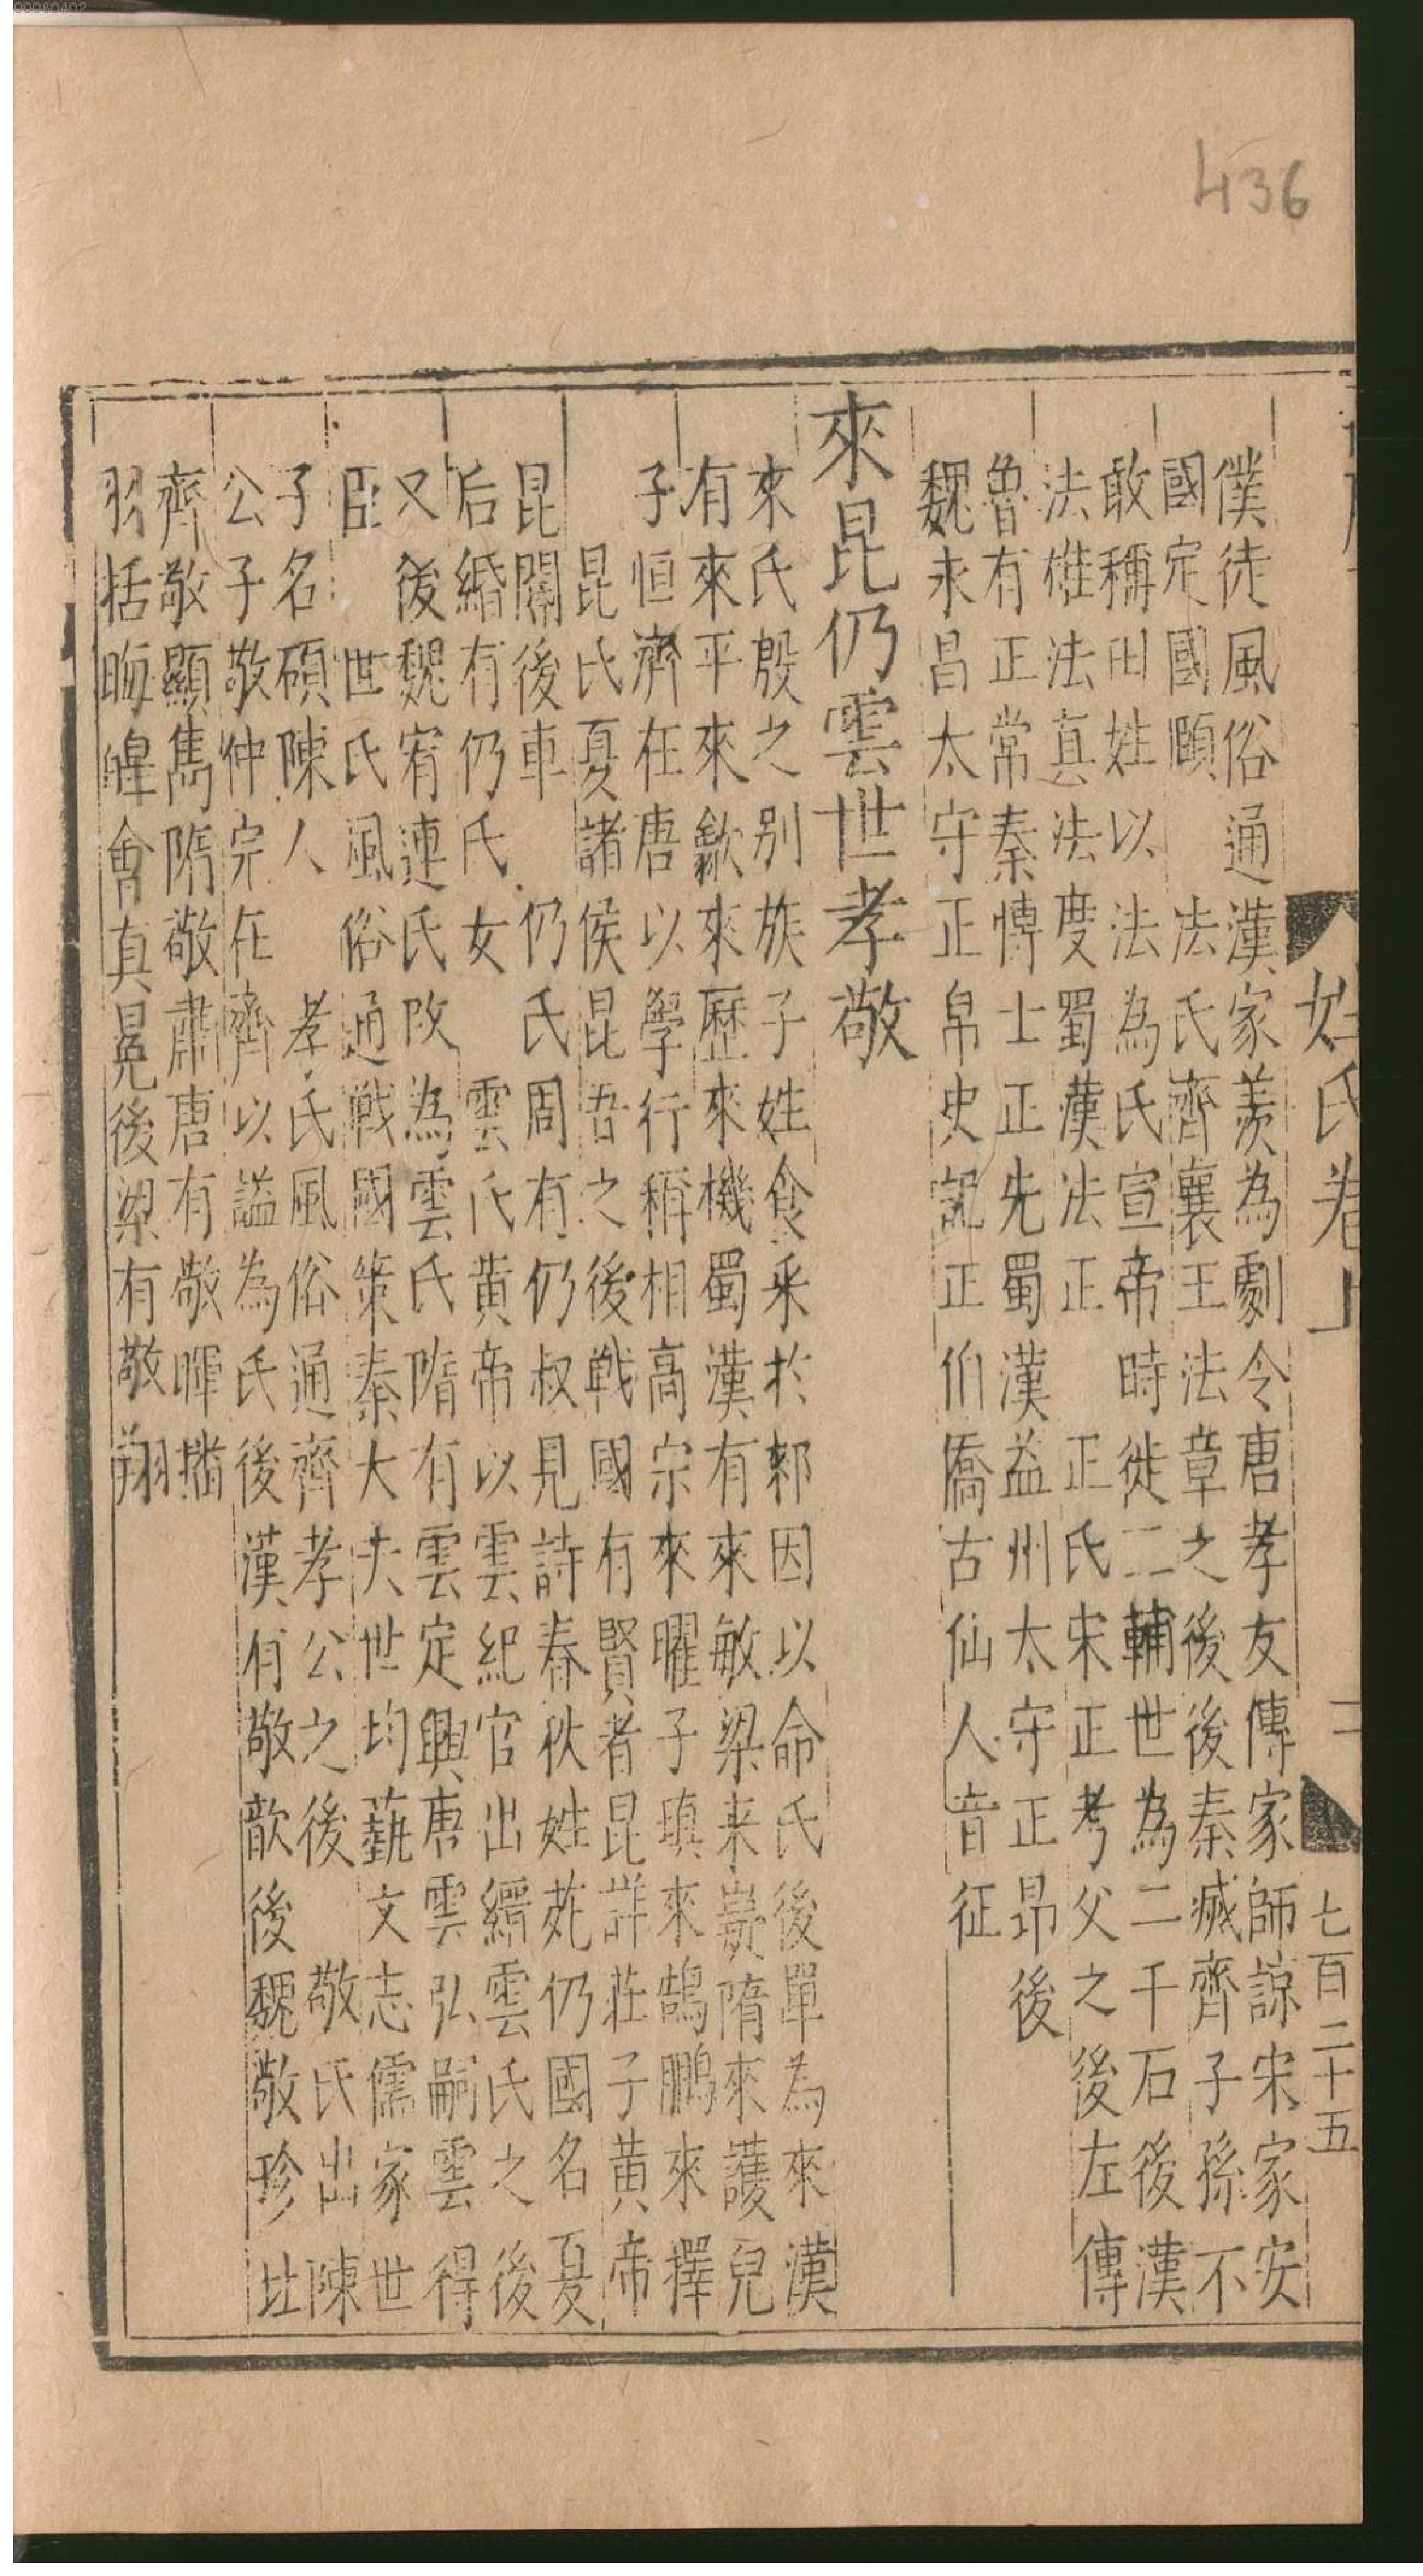 436
姓氏卷上
七百二十五
僕徒風俗通漢家羨為劇令唐孝友傳家師諒宋家安
國定國頤　法氏齊襄王法章之後後秦滅齊子孫不
敢稱田姓以法為氏宣帝時徙二輔世為二千石後漢
法雄法真法度蜀漢法正　正氏宋正考父之後左傳
魯有正常秦博士正先蜀漢益州太守正昂後
魏永昌太守正帛史記正伯僑古仙人音征
來昆仍雲世孝敬
來氏殷之别族子姓食采於郲因以命氏後單為來漢
有來平來歙來歷來機蜀漢有來敏梁来嶷隋來護兒
子恒濟在唐以學行稱相高宗來曜子瑱來鵠鵬來擇
昆氏夏諸侯昆吾之後戰國有賢者昆詳莊子黄帝
昆閽後車　仍氏周有仍叔見詩春秋姓苑仍國名夏
后緡有仍氏女　雲氏黄帝以雲紀官出縉雲氏之後
又後魏宥連氏改為雲氏隋有雲定興唐雲弘嗣雲得
臣　世氏風俗通戰國策秦大夫世均蓺文志儒家世
子名碩陳人　孝氏風俗通齊孝公之後　敬氏出陳
公子敬仲完在齊以謚為氏後漢有敬歆後魏敬珍北
齊敬顯雋隋敬肅唐有敬暉播
羽括晦皡會真晃後梁有敬翔